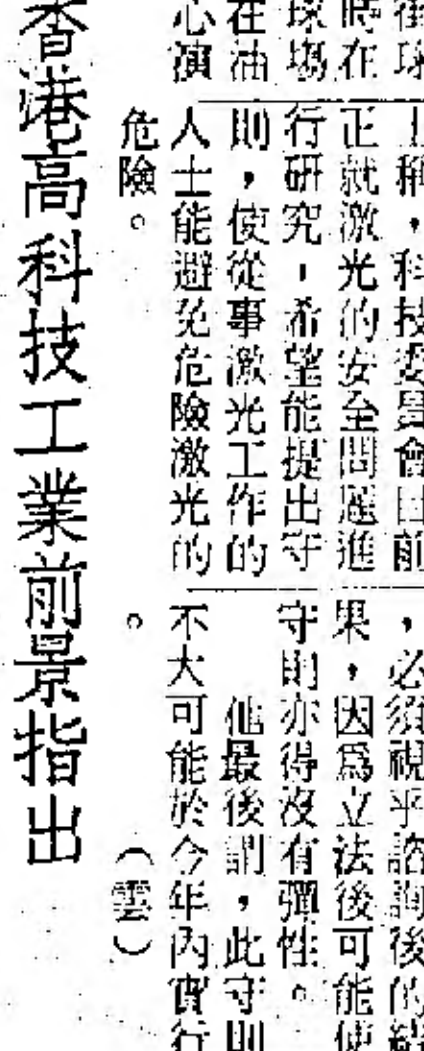 街球
時在
球場
在油
心演
上稱，科技委員會目前
正就激光的安全問題進
行研究，希望能提出守
則，使從事激光工作的
人士能避免危險激光的
危險。
，必須視乎諮詢後的結
果，因爲立法後可能使
守則亦得沒有彈性。
他最後謂，此守則
不大可能於今年內實行
。
（雲）
香港高科技工業前景指出